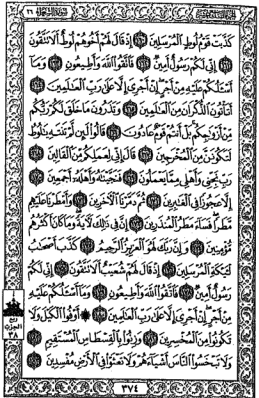 كَذَّبَتْ قَوْمُ لُوطٍ الْمُرْسَلِينَ إِذْ قَالَ لَهُمْ أَخُوهُمْ لُوطٌ أَلَا تَتَّقُونَ
إِنِّي لَكُمْ رَسُولٌ أَمِينٌ فَاتَّقُوا اللَّهَ وَأَطِيعُونِ وَمَا
أَسْـَٔلُكُمْ عَلَيْهِ مِنْ أَجْرٍ إِنْ أَجْرِيَ إِلَّا عَلَىٰ رَبِّ الْعَٰلَمِينَ
أَتَأْتُونَ الذُّكْرَانَ مِنَ الْعَٰلَمِينَ وَتَذَرُونَ مَا خَلَقَ لَكُمْ رَبُّكُمْ
مِنْ أَزْوَٰجِكُمْ بَلْ أَنْتُمْ قَوْمٌ عَادُونَ قَالُوا لَئِنْ لَمْ تَنْتَهِ يَٰلُوطُ
لَتَكُونَنَّ مِنَ الْمُخْرَجِينَ قَالَ إِنِّي لِعَمَلِكُمْ مِنَ الْقَالِينَ
رَبِّ نَجِّنِي وَأَهْلِي مِمَّا يَعْمَلُونَ فَنَجَّيْنَٰهُ وَأَهْلَهُ أَجْمَعِينَ
إِلَّا عَجُوزًا فِي الْغَٰبِرِينَ ثُمَّ دَمَّرْنَا الْآخَرِينَ وَأَمْطَرْنَا عَلَيْهِمْ
مَطَرًا فَسَاءَ مَطَرُ الْمُنْذَرِينَ إِنَّ فِي ذَٰلِكَ لَآيَةً وَمَا كَانَ أَكْثَرُهُمْ
مُؤْمِنِينَ وَإِنَّ رَبَّكَ لَهُوَ الْعَزِيزُ الرَّحِيمُ كَذَّبَ أَصْحَٰبُ
لْـَٔيْكَةِ الْمُرْسَلِينَ إِذْ قَالَ لَهُمْ شُعَيْبٌ أَلَا تَتَّقُونَ إِنِّي لَكُمْ
رَسُولٌ أَمِينٌ فَاتَّقُوا اللَّهَ وَأَطِيعُونِ وَمَا أَسْـَٔلُكُمْ عَلَيْهِ
مِنْ أَجْرٍ إِنْ أَجْرِيَ إِلَّا عَلَىٰ رَبِّ الْعَٰلَمِينَ ۞ أَوْفُوا الْكَيْلَ وَلَا
تَكُونُوا مِنَ الْمُخْسِرِينَ وَزِنُوا بِالْقِسْطَاسِ الْمُسْتَقِيمِ
وَلَا تَبْخَسُوا النَّاسَ أَشْيَاءَهُمْ وَلَا تَعْثَوْا فِي الْأَرْضِ مُفْسِدِينَ
ربع
الحزب
٣٨
٣٧٤